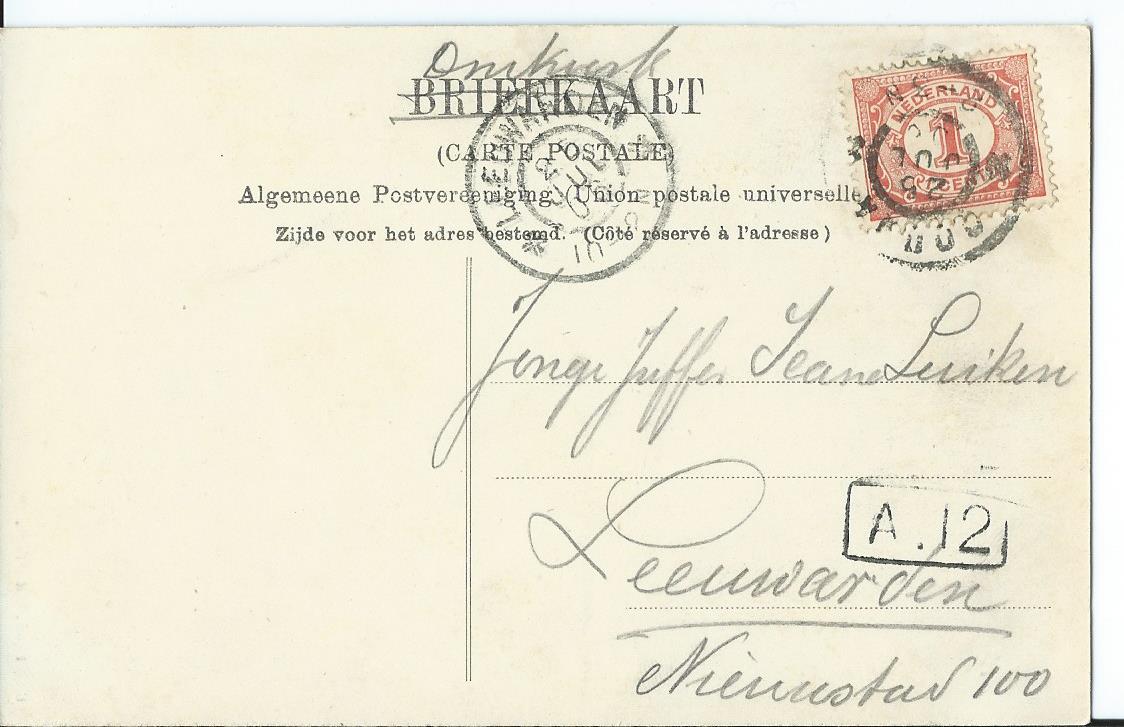 BRIEFKAART
(CARTE POSTALE)
Algemeene Postvereeniging (Union postale universelle
Zijde voor het adres bestemd. (Côté réservé à l'adresse)
LEEUWARDEN
NEDERLAND
1
CENT
GOUDA
Jonge Juffer Jeane Luiken
A.12
Leeuwarden
Nieuwstad 100